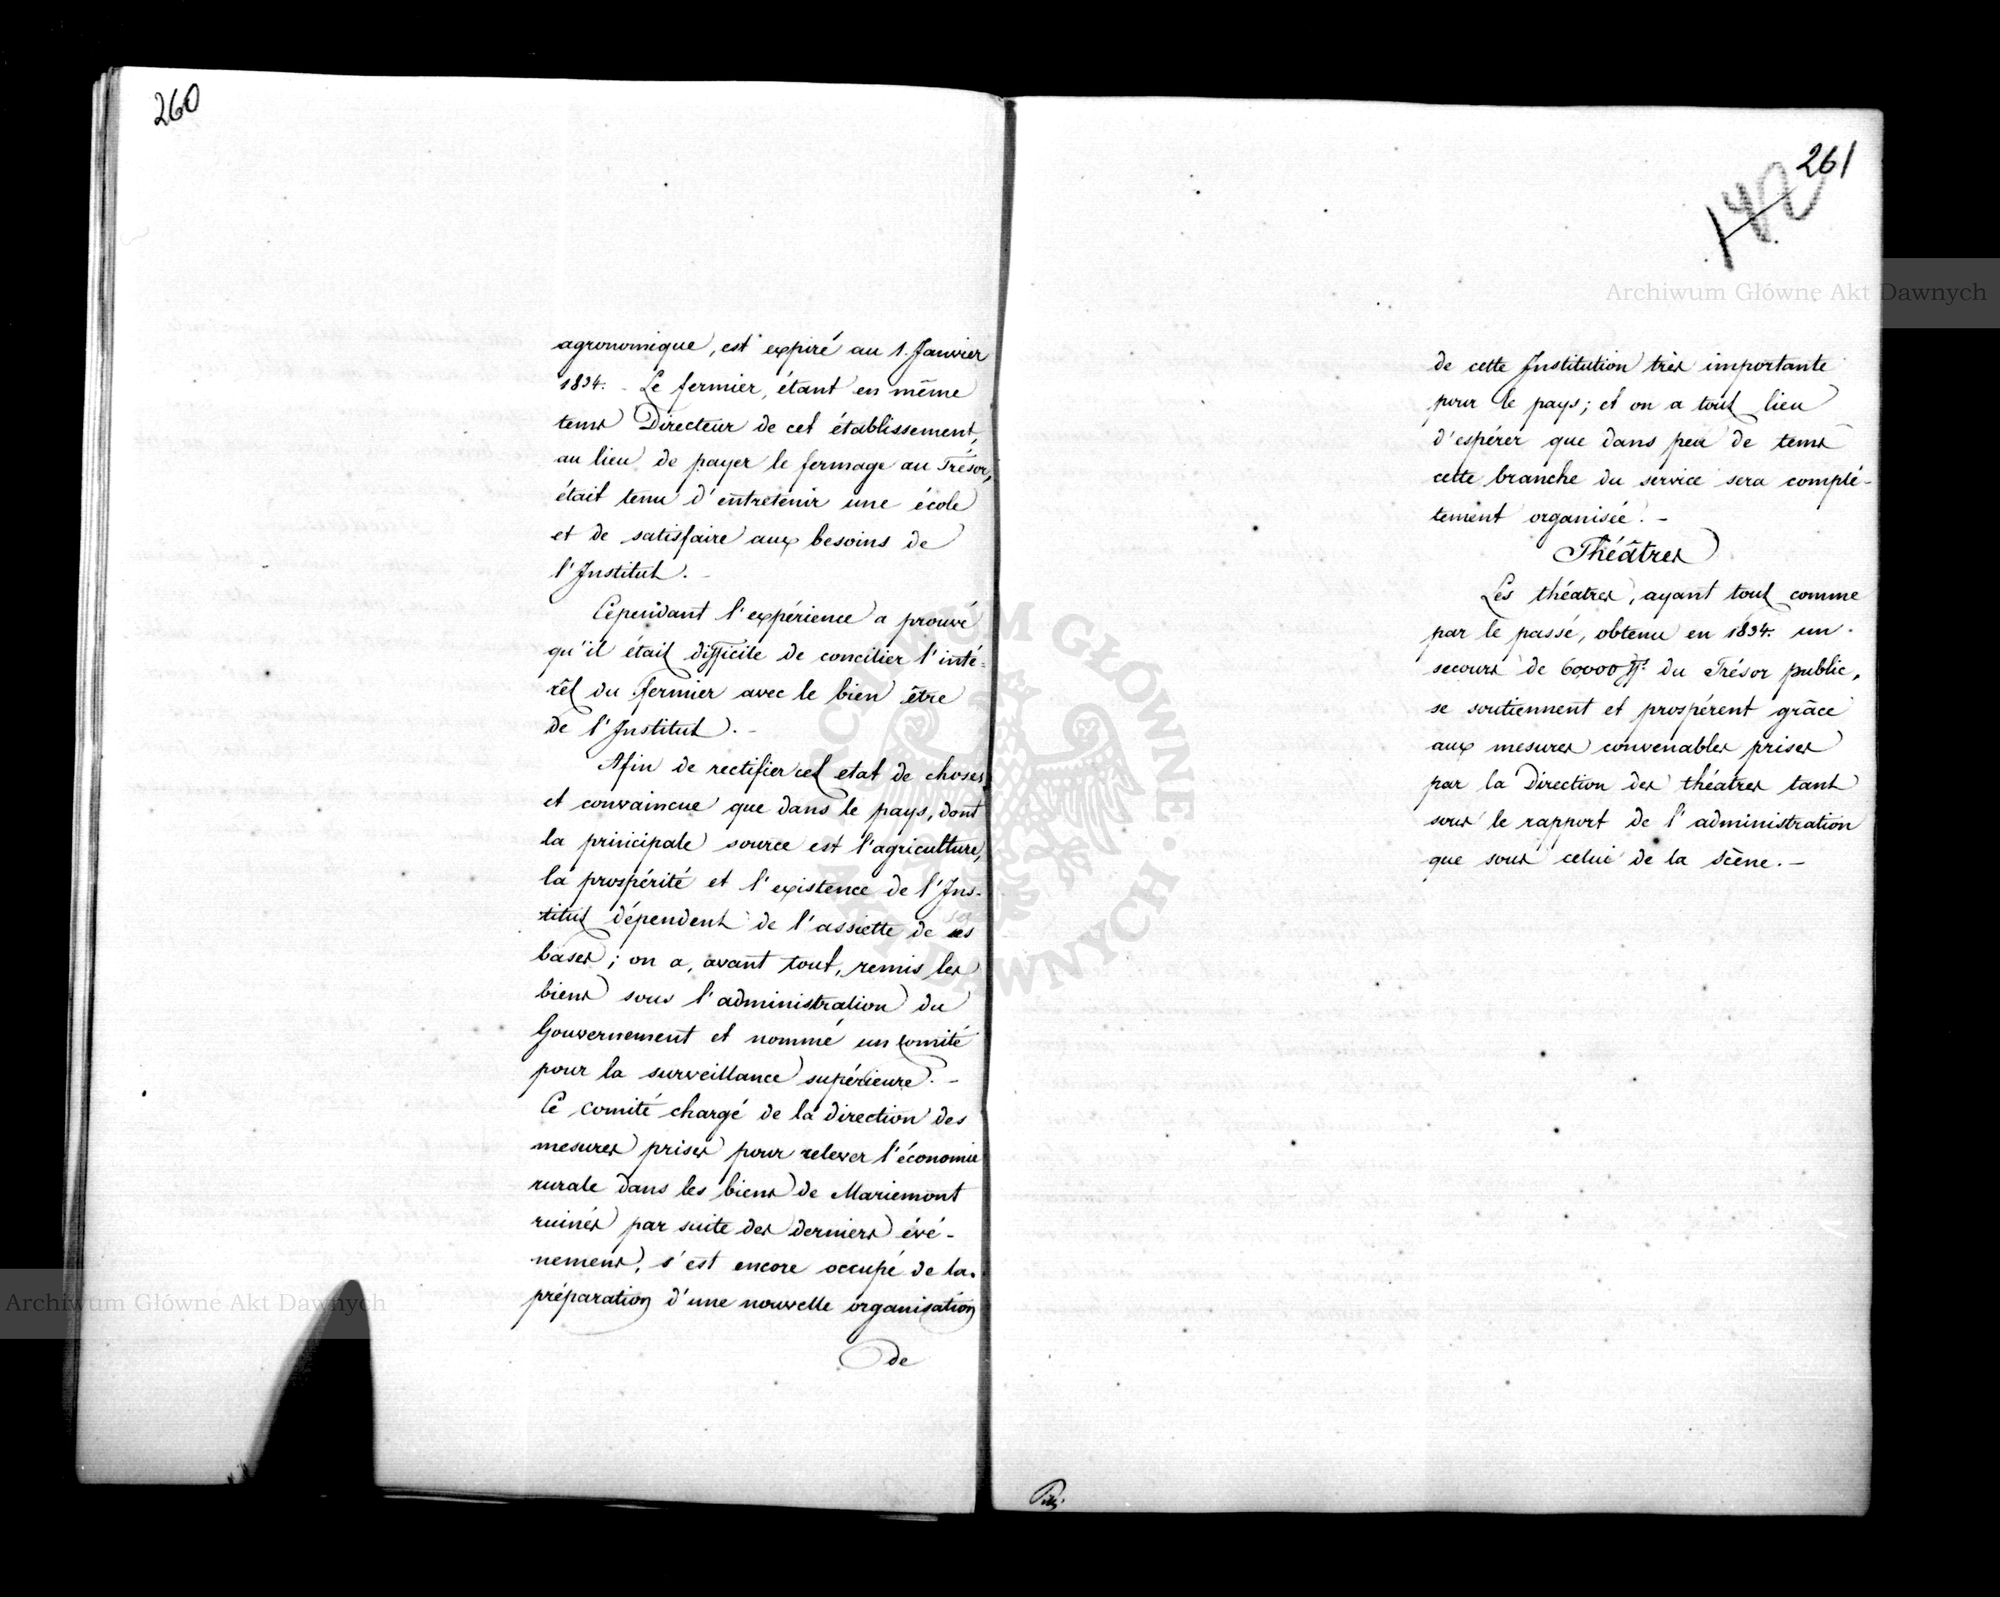 260
agronomique, est expiré au 1. Janvier
1834. - Le fermier, étant en même
tems Directeur de cet établissement,
au lieu de payer le fermage au Trésor,
était tenu d'entretenir une école
et de satisfaire aux besoins de
l'Institut. -
Cependant l'expérience a prouvé
qu'il était difficile de concilier l'inté-
rêt du fermier avec le bien être
de l'Institut. -
Afin de rectifier cet etat de choses,
et convaincue que dans le pays, dont
la principale source est l'agriculture,
la prospérité et l'existence de l'Ins-
titut dépendent de l'assiette de ses
bases; on a, avant tout, remis les
biens sous l'administration du
Gouvernement et nommé un comité
pour la surveillance supérieure. -
Ce comité chargé de la direction des
mesures prises pour relever l'économie
rurale dans les biens de Mariemont
ruinés par suite des derniers évé-
nemens, s'est encore occupé de la
préparation d'une nouvelle organisation
de
261
142
de cette Institution très importante
pour le pays; et on a tout lieu
d'espérer que dans peu de tems
cette branche du service sera complé-
tement organisée. -
Théâtres
Les théatres, ayant tout comme
par le passé, obtenu en 1834. un
secours de 60,000 fl. du Trésor public,
se soutiennent et prospérent grâce
aux mesures convenables prises
par la Direction des théatres tant
sous le rapport de l'administration
que sous celui de la Scène. -
Archiwum Główne Akt Dawnych
Archiwum Główne Akt Dawnych
ARCHIWUM GŁÓWNE · AKT DAWNYCH ·